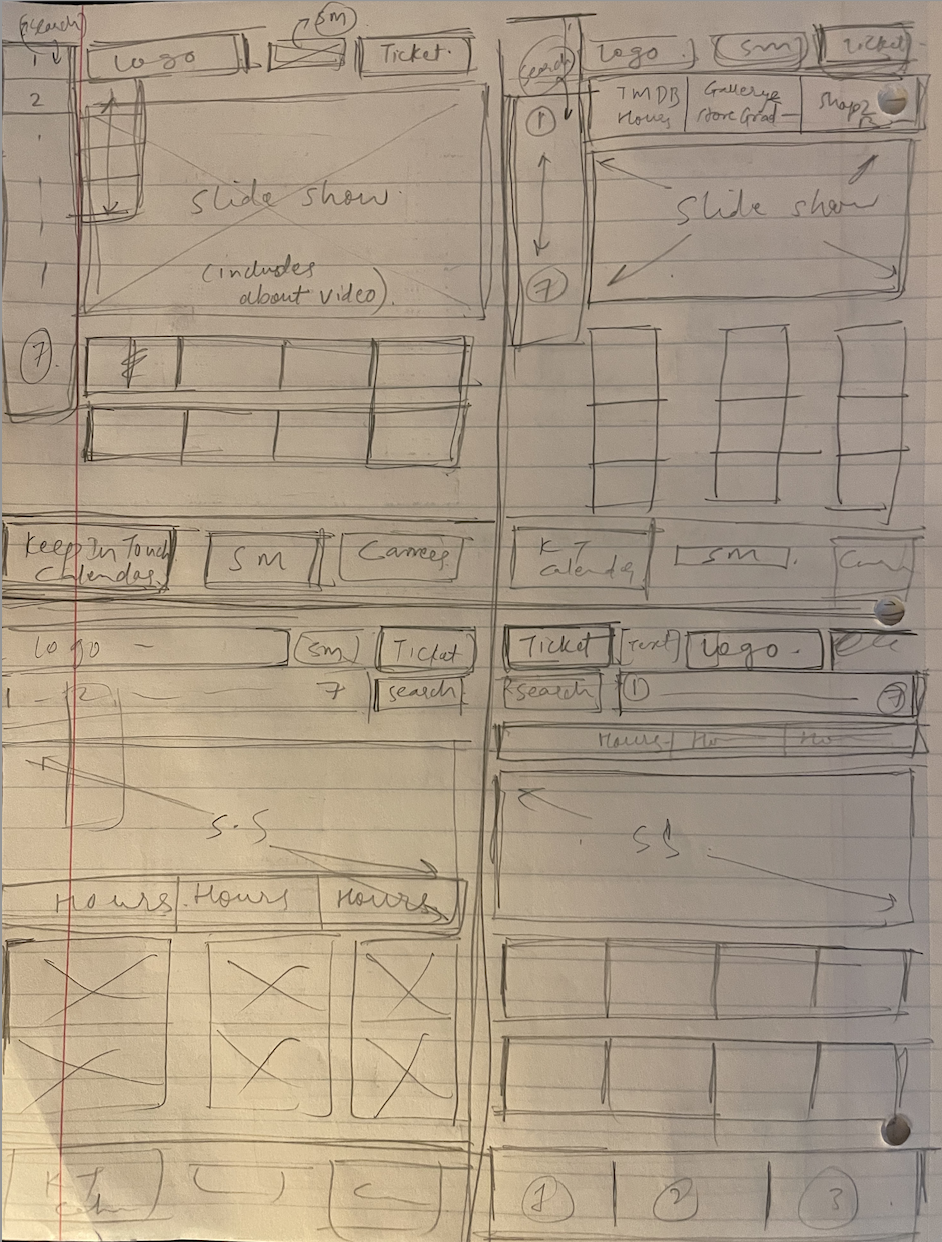 Search
SM
Logo
Ticket
1
2
7
Slide show
(includes
about video)
Keep In Touch
Calendar
SM
Search
Logo
SM
Ticket
TMDB
Hours
1
7
Slide show
K T
Calendar
SM
Logo
SM
Ticket
1
2
7
Search
S.S
Hours
Hours
Hours
K T
Ticket
Text
Logo
Search
1
7
Hours
Ho
Ho
SS
1
2
3